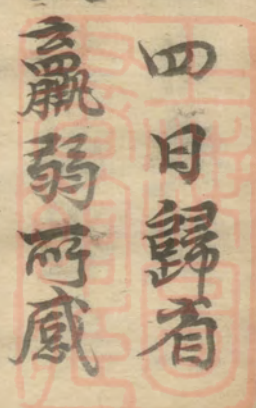 四日歸省
羸弱所感